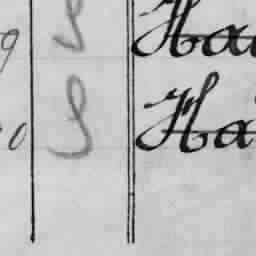 9 S Ha
0 S Ha